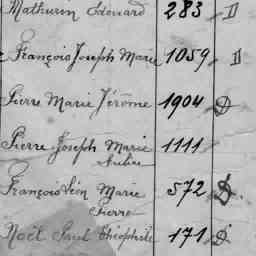 Mathurin Edouard 283 D
François Joseph Marie 1059 D
Pierre Marie Jérôme 1904 D
Pierre Joseph Marie 1111
François Léon Marie 572 D
Pierre
Noël Paul Théophile 171 D